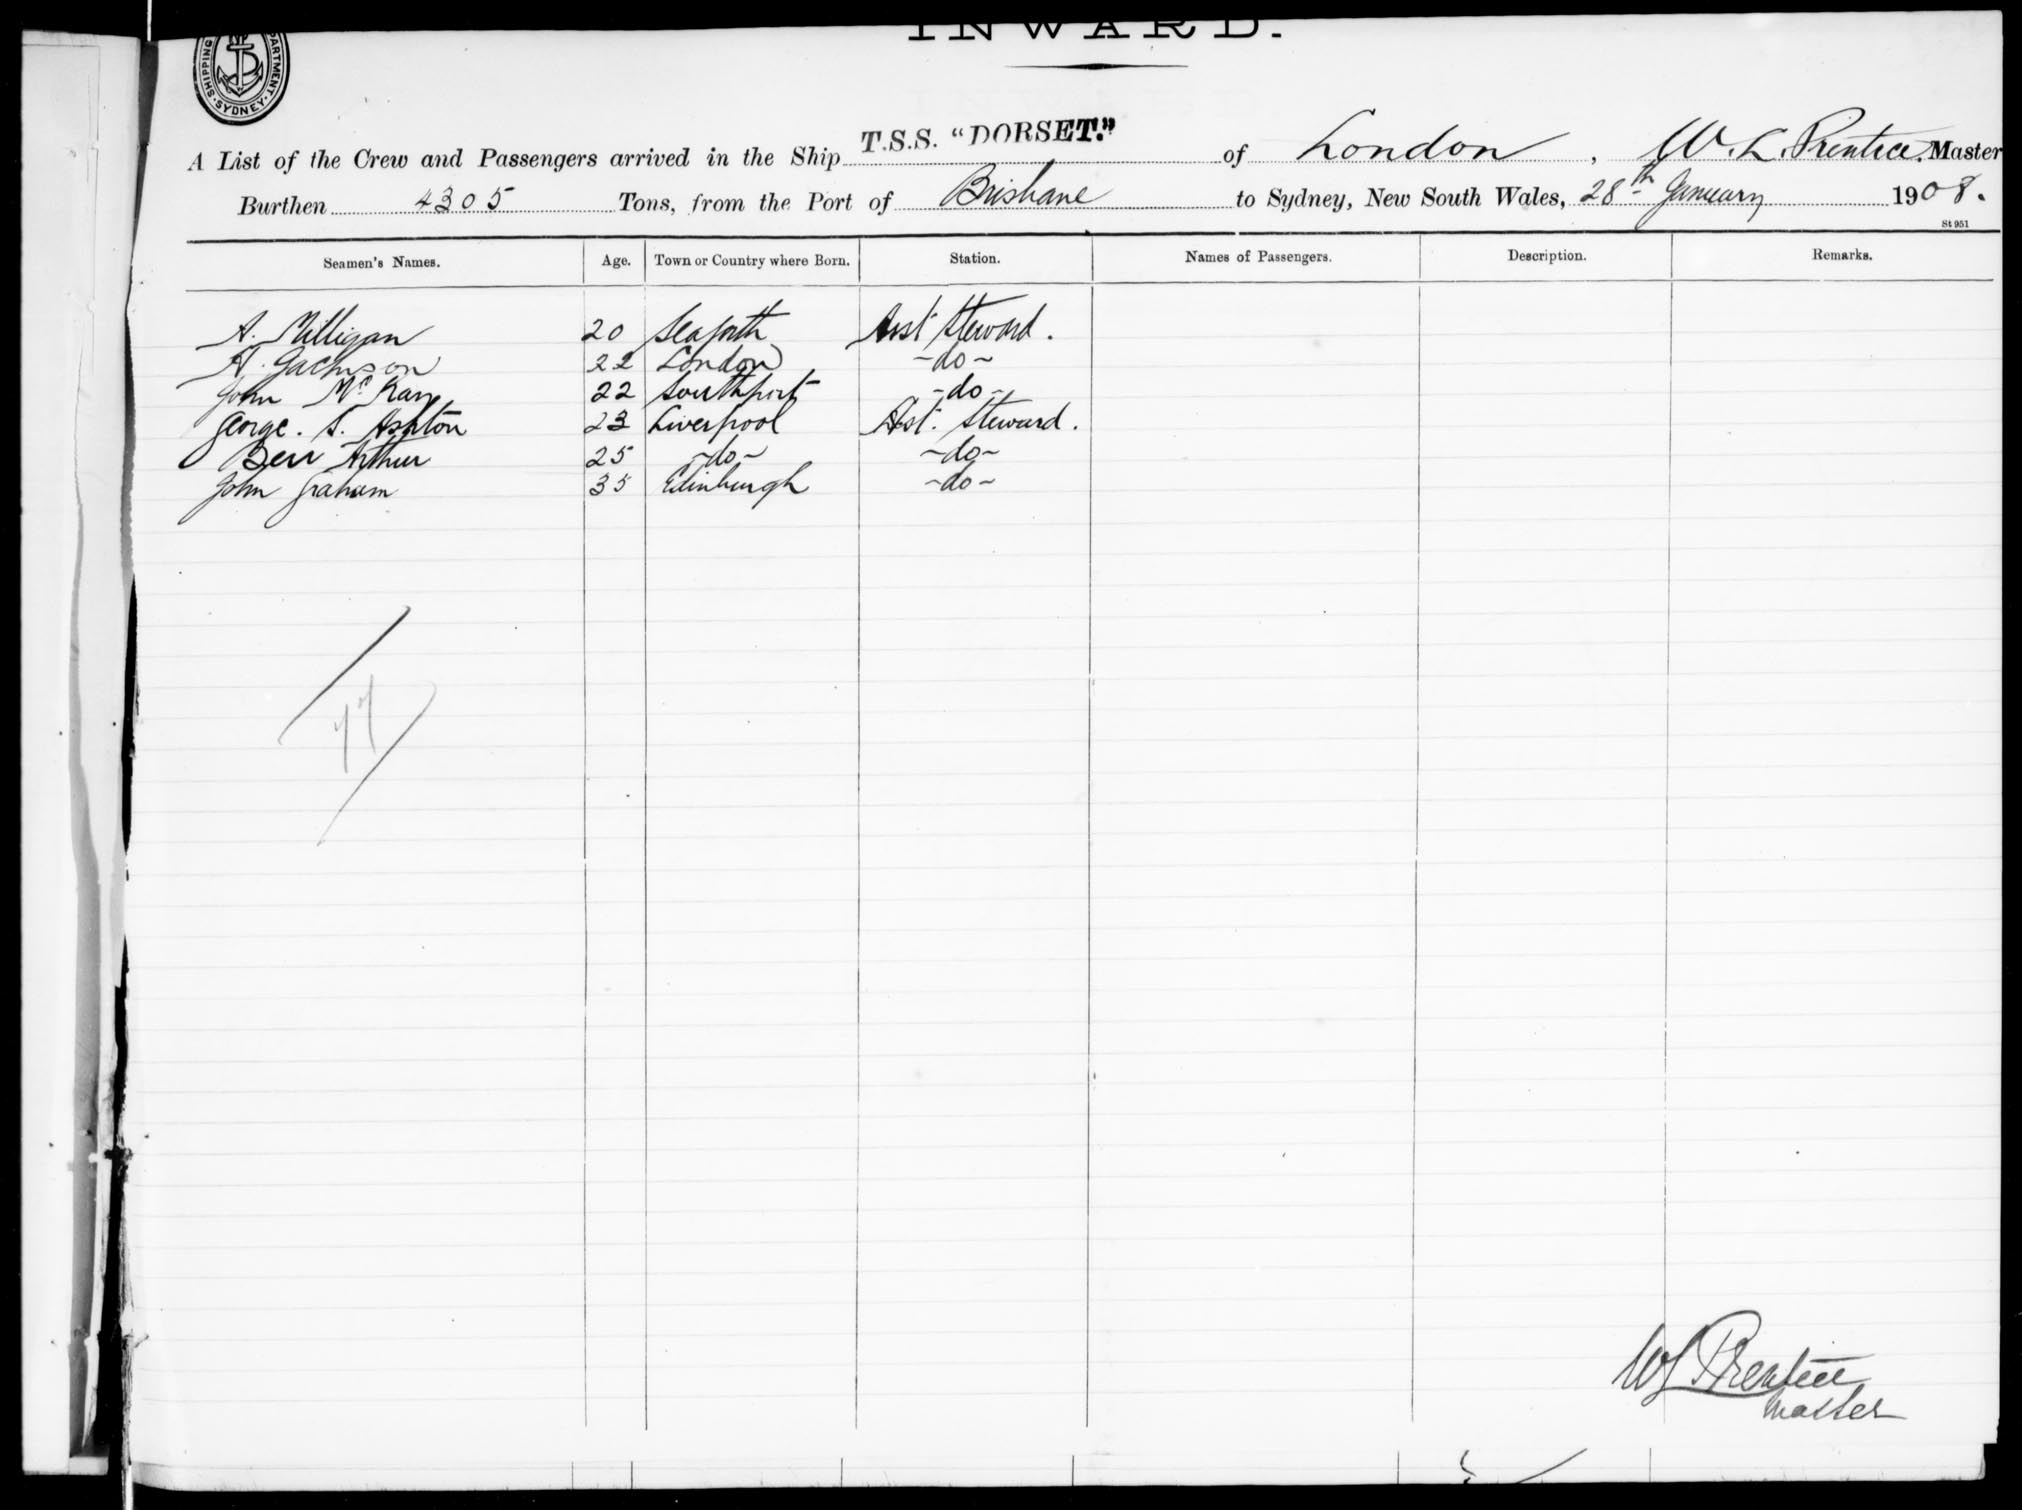 INWARD.
SHIPPING DEPARTMENT SYDNEY
A List of the Crew and Passengers arrived in the Ship T.S.S. "DORSET." of London, W. L. Prentice. Master
Burthen 4305 Tons, from the Port of Brisbane to Sydney, New South Wales, 28th January 1908.
St 951
Seamen's Names. Age. Town or Country where Born. Station. Names of Passengers. Description. Remarks.
A. Milligan 20 Seaforth Asst Steward.
22 London -do-
John McKay 22 Southport -do-
George. S. Ashton 23 Liverpool Asst. Steward.
Ben Arthur 25 -do- -do-
John Graham 35 Edinburgh -do-
77
WL Prentice
Master